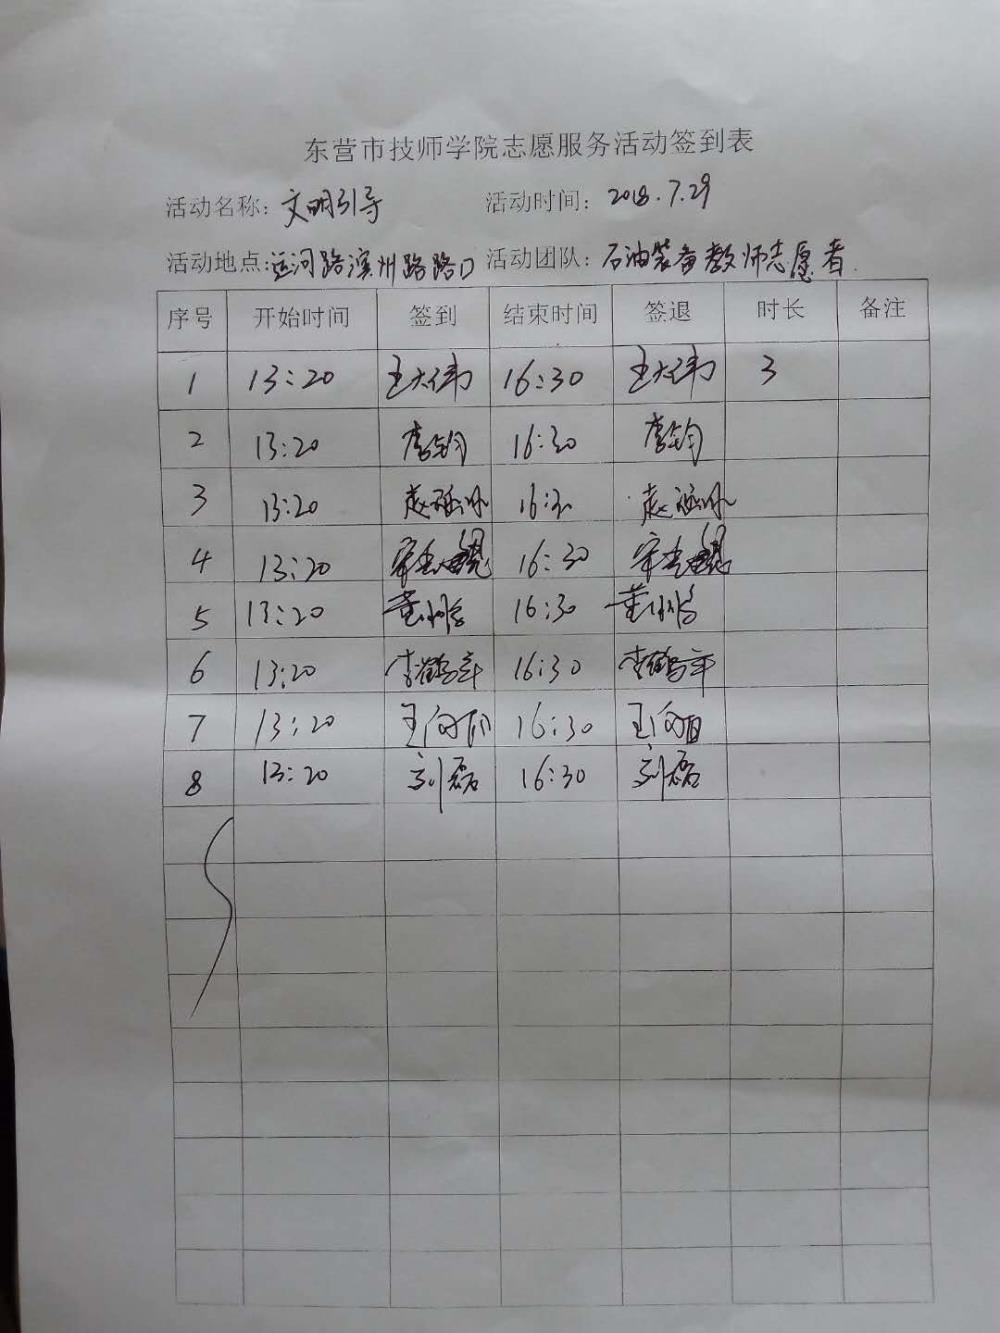 东营市技师学院志愿服务活动签到表
活动名称: 文明引导 活动时间: 2018.7.29
活动地点: 运河路滨州路路口 活动团队: 石油装备教师志愿者
序号 开始时间 签到 结束时间 签退 时长 备注
1 13:20 王大伟 16:30 王大伟 3
2 13:20 李钧 16:30 李钧
3 13:20 16:30
4 13:20 16:30
5 13:20 16:30
6 13:20 李鹤年 16:30 李鹤年
7 13:20 16:30
8 13:20 刘磊 16:30 刘磊